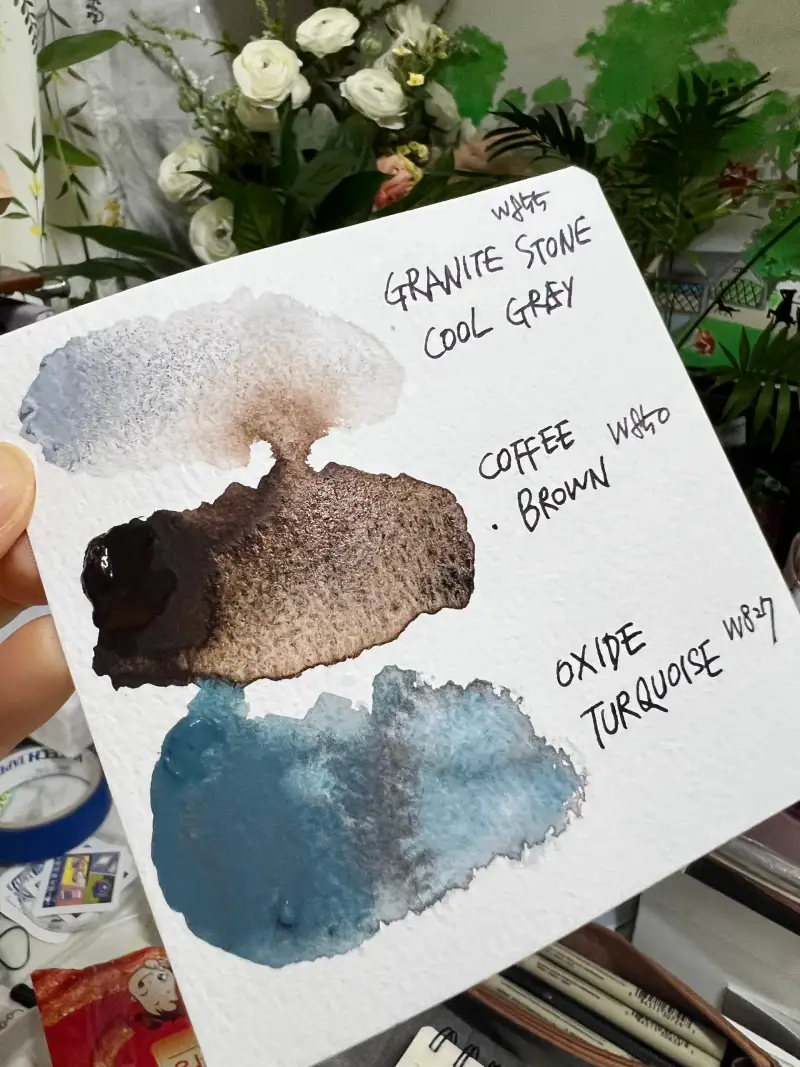 W855
GRANITE STONE
COOL GREY
COFFEE W850
. BROWN
OXIDE
TURQUOISE W827